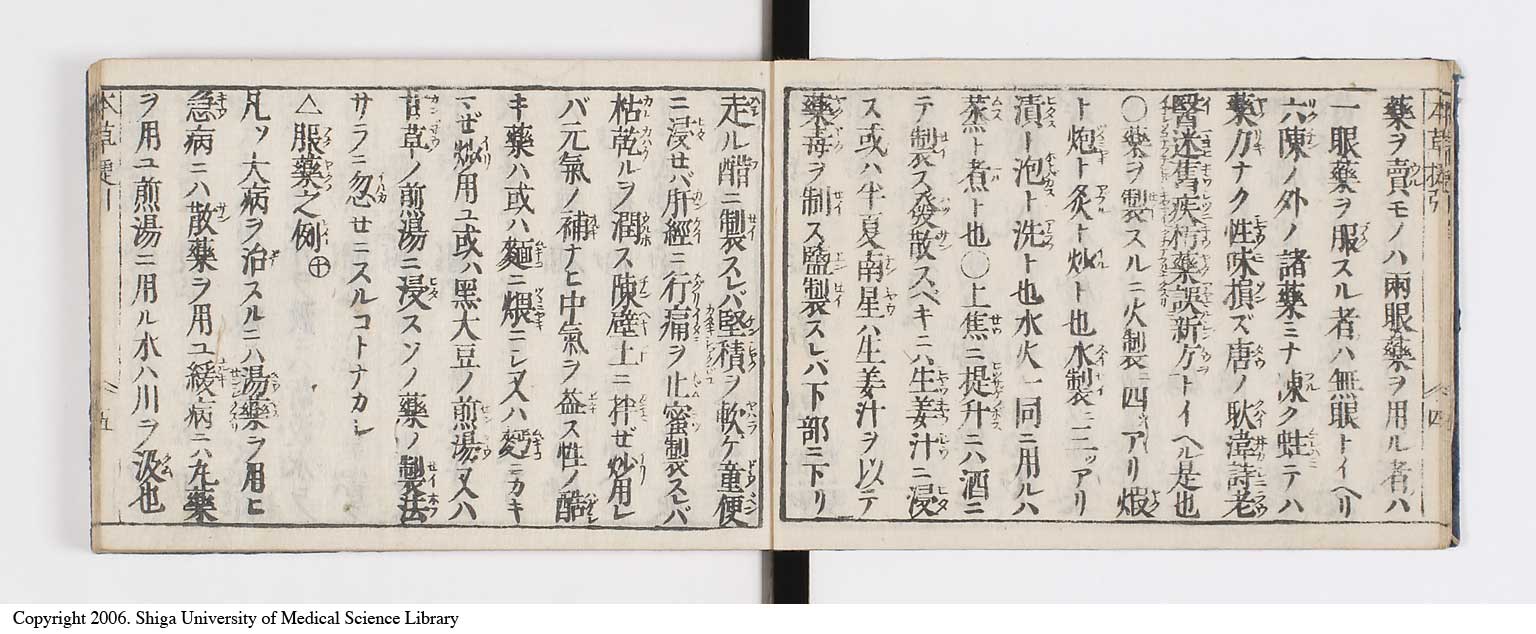 藥ヲ賣モノハ兩眼藥ヲ用ル者ハ
一眼藥ヲ服スル者ハ無眼トイヘリ
六陳ノ外ノ諸藥ミナ凍ク蛀テハ
藥力ナク性味損ズ唐ノ耿湋詩老
醫迷舊疾朽藥誤新方トイヘル是也
○藥ヲ製スルニ火製ニ四アリ煆
ト炮ト炙ト炒ト也水製ニ三ッアリ
漬ト泡ト洗ト也水火一同ニ用ルハ
蒸ト煮ト也○上焦ニ提升ニハ酒ニ
テ製ス發散スベキニハ生姜汁ニ浸
ス或ハ半夏南星ハ生姜汁ヲ以テ
藥毒ヲ制ス鹽製スレバ下部ニ下リ
走ル醋ニ製スレバ堅積ヲ軟ケ童便
ニ浸セバ肝經ニ行痛ヲ止蜜製スレバ
枯乾ルヲ潤ス陳壁土ニ拌ぜ炒用レ
バ元氣ノ補ナヒ中氣ヲ益ス性ノ酷
キ藥ハ或ハ麵ニ煨ニシ又ハ麫ニカキ
マぜ炒用ユ或ハ黑大豆ノ煎湯又ハ
甘草ノ煎湯ニ浸スソノ藥ノ製法
サラニ忽セニスルコトナカレ
△服藥之例㊉
凡ソ大病ヲ治スルニハ湯藥ヲ用ヒ
急病ニハ散藥ヲ用ユ緩病ニハ丸藥
ヲ用ユ煎湯ニ用ル水ハ川ヲ汲也
Copyright 2006. Shiga University of Medical Science Library